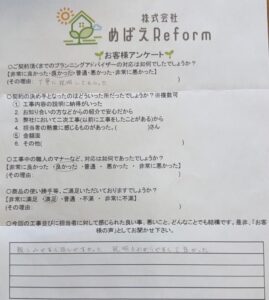 株式会社
めばえReform
お客様アンケート
○ご契約頂くまでのプランニングアドバイザーの対応は如何でしたでしょうか?
【非常に良かった・良かった・普通・悪かった・非常に悪かった】
(その理由: 丁寧に
○契約の決め手となったのはどういった所だったでしょうか?※複数可
① 工事内容の説明に納得がいった
2. お知り合いの方などからの紹介で安心だから
3. 弊社において二次工事(以前に工事をしたことがある)から
4. 担当者の熱意に感じるものがあった。( )さん
⑤ 金額面
6. その他( )
○工事中の職人のマナーなど、対応は如何であったでしょうか?
【非常に良かった・良かった・普通・悪かった・非常に悪かった】
(その理由: )
○商品の使い勝手等、ご満足いただいておりますでしょうか?
【非常に満足・満足・普通・不満・非常に不満】
(その理由: )
○今回の工事並びに担当者に対して感じられた良い事、悪いこと、どんなことでも結構です。是非、「お客様の声」としてお聞かせ下さい。